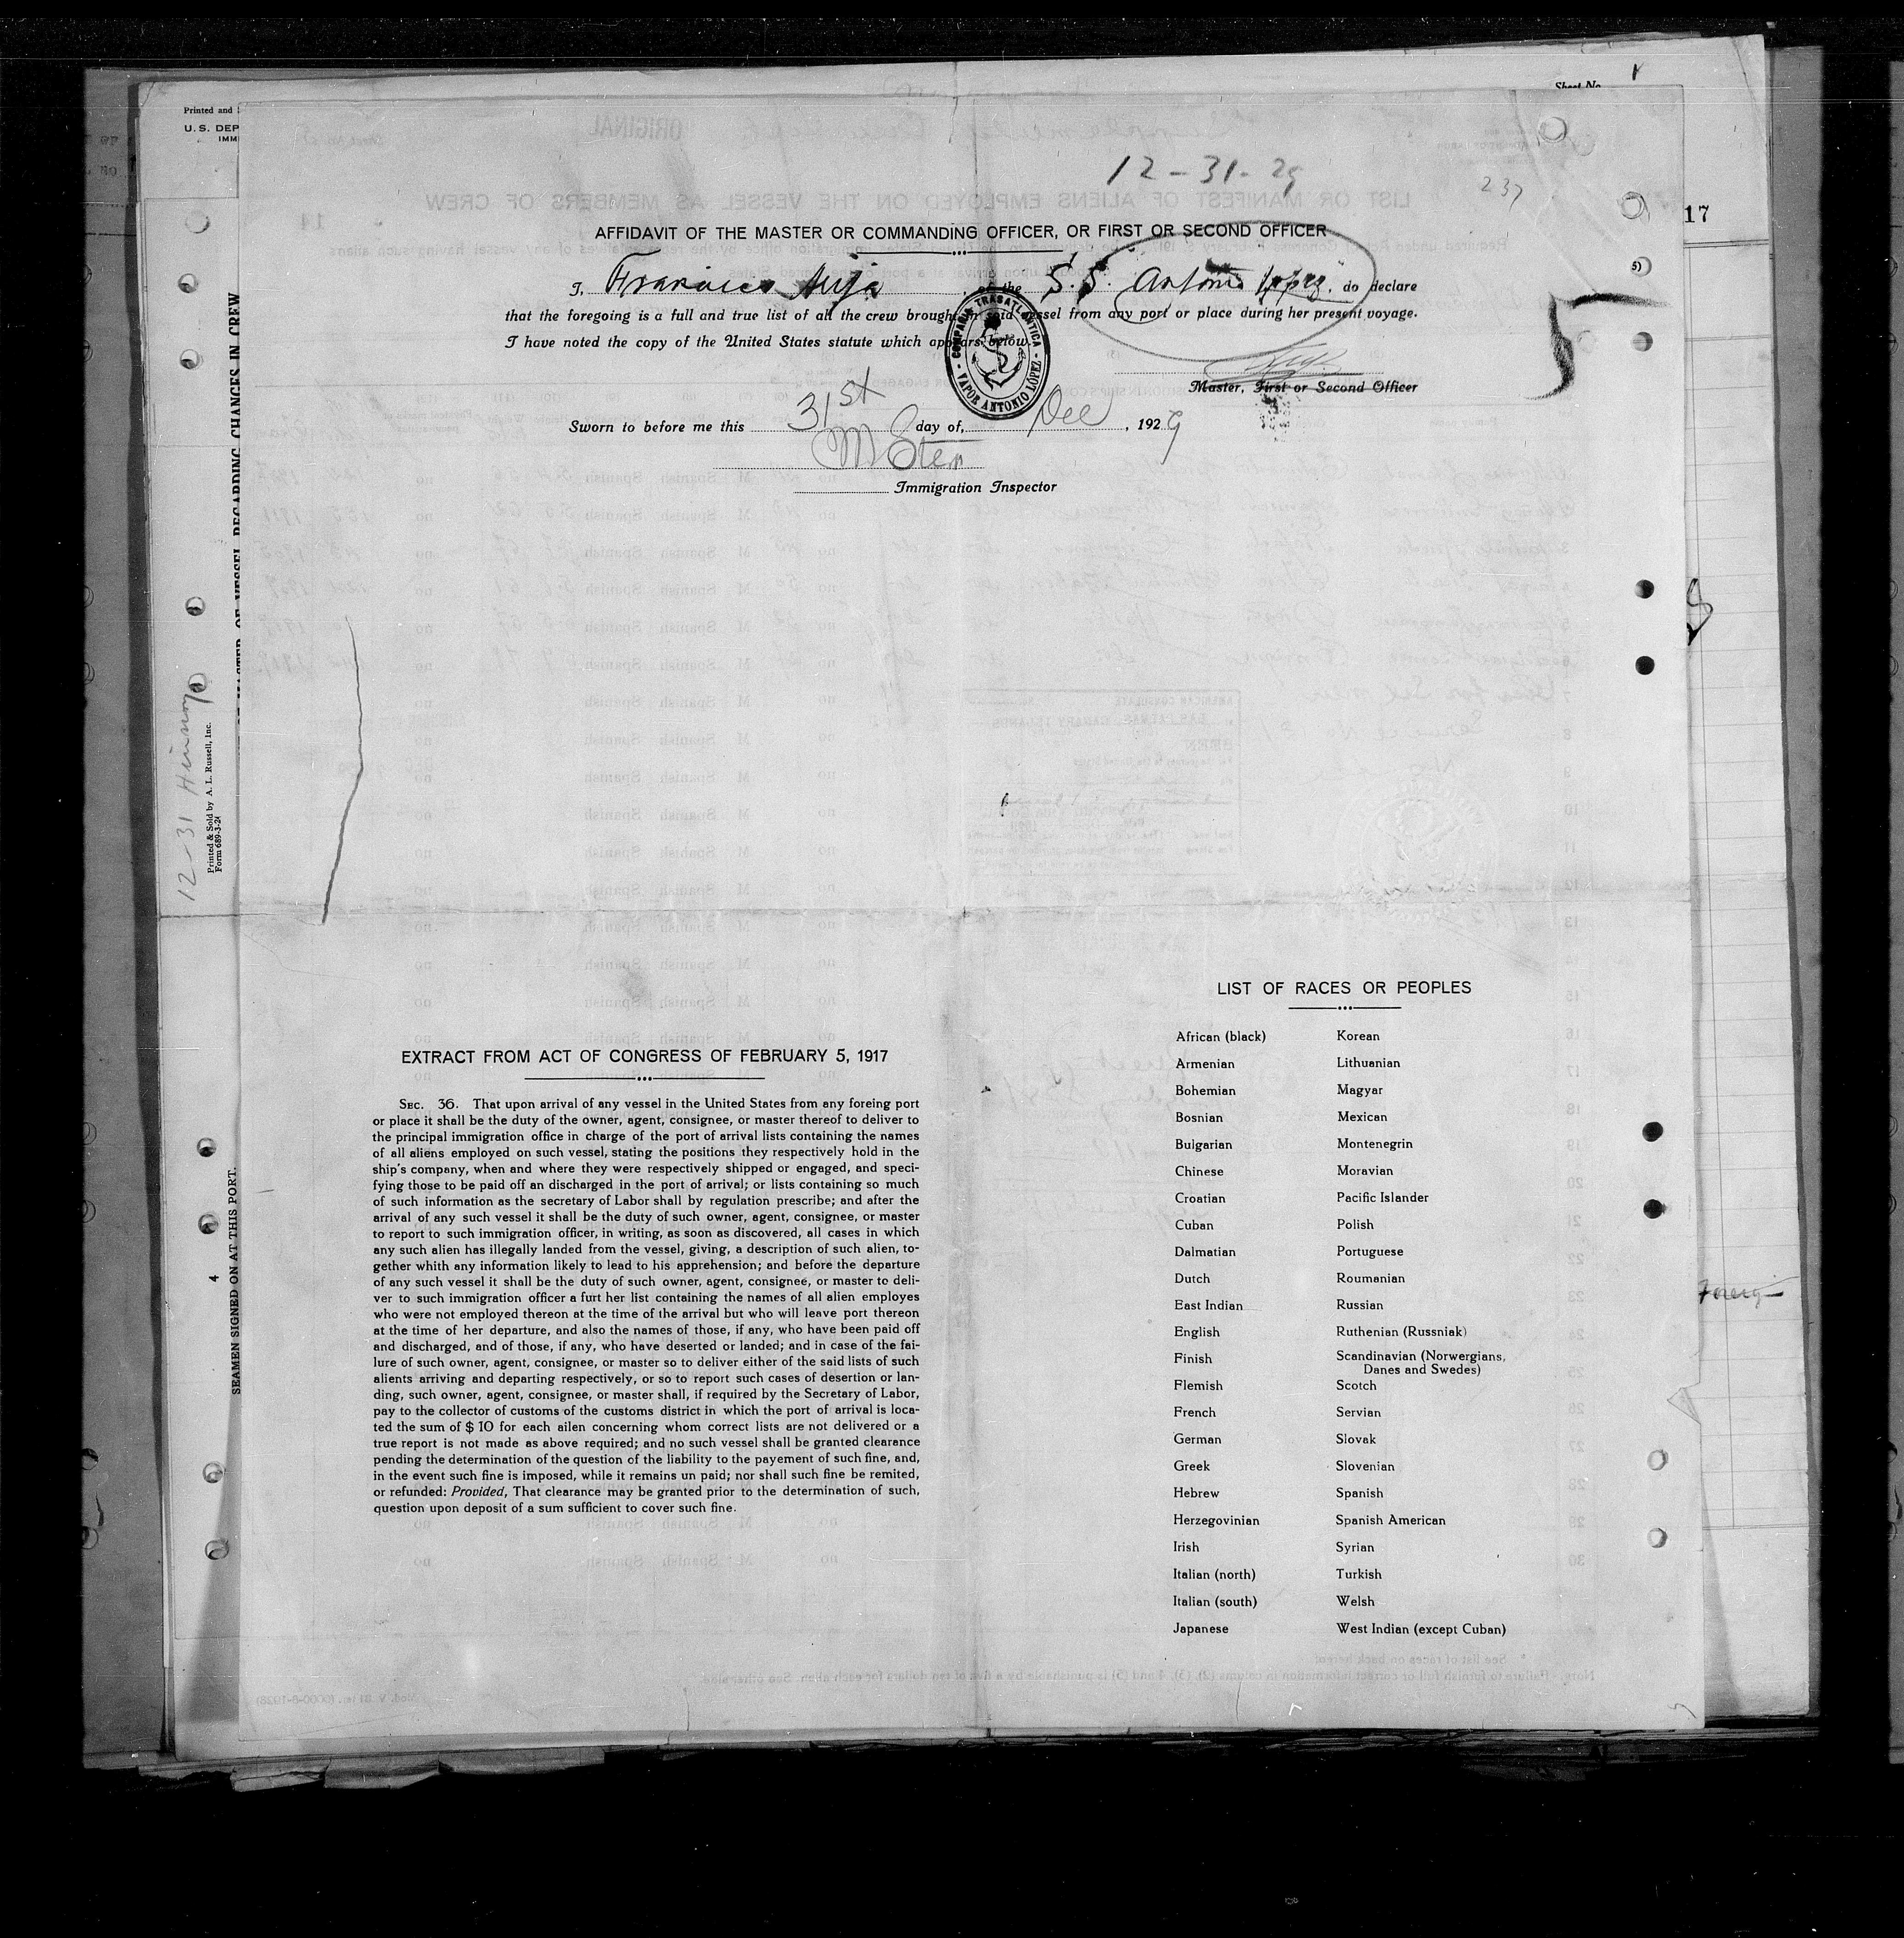 Sheet No.
Printed and
U. S. DEP
IMM
12-31-29
237
17
AFFIDAVIT OF THE MASTER OR COMMANDING OFFICER, OR FIRST OR SECOND OFFICER
I, Francisco of the S.S. Antonio López, do declare
that the foregoing is a full and true list of all the crew brought in said vessel from any port or place during her present voyage.
I have noted the copy of the United States statute which appears below.
COMPAÑIA TRASATLANTICA
- VAPOR ANTONIO LÓPEZ -
Master, First or Second Officer
Sworn to before me this 31st day of, Dec, 1929
Immigration Inspector
12-31
Printed & Sold by A. L. Russell, Inc.
Form 689-3-24
OF MASTER OF VESSEL REGARDING CHANGES IN CREW
SEAMEN SIGNED ON AT THIS PORT.
4
EXTRACT FROM ACT OF CONGRESS OF FEBRUARY 5, 1917
SEC. 36. That upon arrival of any vessel in the United States from any foreing port
or place it shall be the duty of the owner, agent, consignee, or master thereof to deliver to
the principal immigration office in charge of the port of arrival lists containing the names
of all aliens employed on such vessel, stating the positions they respectively hold in the
ship's company, when and where they were respectively shipped or engaged, and speci-
fying those to be paid off an discharged in the port of arrival; or lists containing so much
of such information as the secretary of Labor shall by regulation prescribe; and after the
arrival of any such vessel it shall be the duty of such owner, agent, consignee, or master
to report to such immigration officer, in writing, as soon as discovered, all cases in which
any such alien has illegally landed from the vessel, giving, a description of such alien, to-
gether whith any information likely to lead to his apprehension; and before the departure
of any such vessel it shall be the duty of such owner, agent, consignee, or master to deli-
ver to such immigration officer a furt her list containing the names of all alien employes
who were not employed thereon at the time of the arrival but who will leave port thereon
at the time of her departure, and also the names of those, if any, who have been paid off
and discharged, and of those, if any, who have deserted or landed; and in case of the fai-
lure of such owner, agent, consignee, or master so to deliver either of the said lists of such
alients arriving and departing respectively, or so to report such cases of desertion or lan-
ding, such owner, agent, consignee, or master shall, if required by the Secretary of Labor,
pay to the collector of customs of the customs district in which the port of arrival is loca-
ted the sum of $ 10 for each ailen concerning whom correct lists are not delivered or a
true report is not made as above required; and no such vessel shall be granted clearance
pending the determination of the question of the liability to the payement of such fine, and,
in the event such fine is imposed, while it remains un paid; nor shall such fine be remited,
or refunded: Provided, That clearance may be granted prior to the determination of such,
question upon deposit of a sum sufficient to cover such fine.
LIST OF RACES OR PEOPLES
African (black) Korean
Armenian Lithuanian
Bohemian Magyar
Bosnian Mexican
Bulgarian Montenegrin
Chinese Moravian
Croatian Pacific Islander
Cuban Polish
Dalmatian Portuguese
Dutch Roumanian
East Indian Russian
English Ruthenian (Russniak)
Finish Scandinavian (Norwergians,
Danes and Swedes)
Flemish Scotch
French Servian
German Slovak
Greek Slovenian
Hebrew Spanish
Herzegovinian Spanish American
Irish Syrian
Italian (north) Turkish
Italian (south) Welsh
Japanese West Indian (except Cuban)